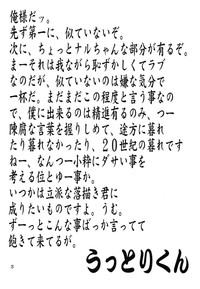 俺様だッ。
先ず第一に、似ていないぞ。
次に、ちょっとナルちゃんな部分が有るぞ。
まーそれは我ながら恥ずかしくてラブ
なのだが、似ていないのは嫌な気分で
一杯だ。まだまだこの程度と言う事な
ので、僕に出来るのは精進有るのみ、つー
陳腐な言葉を握りしめて、途方に暮れ
たり暮れなかったり、20世紀の暮れです
ねー、なんつー小粋にダサい事を
考える位とゆー事だ。
いつかは立派な落描き君に
成りたいものですよ。うむ。
ずーっとこんな事ばっか言ってて
飽きて来てるが。
うっとりくん